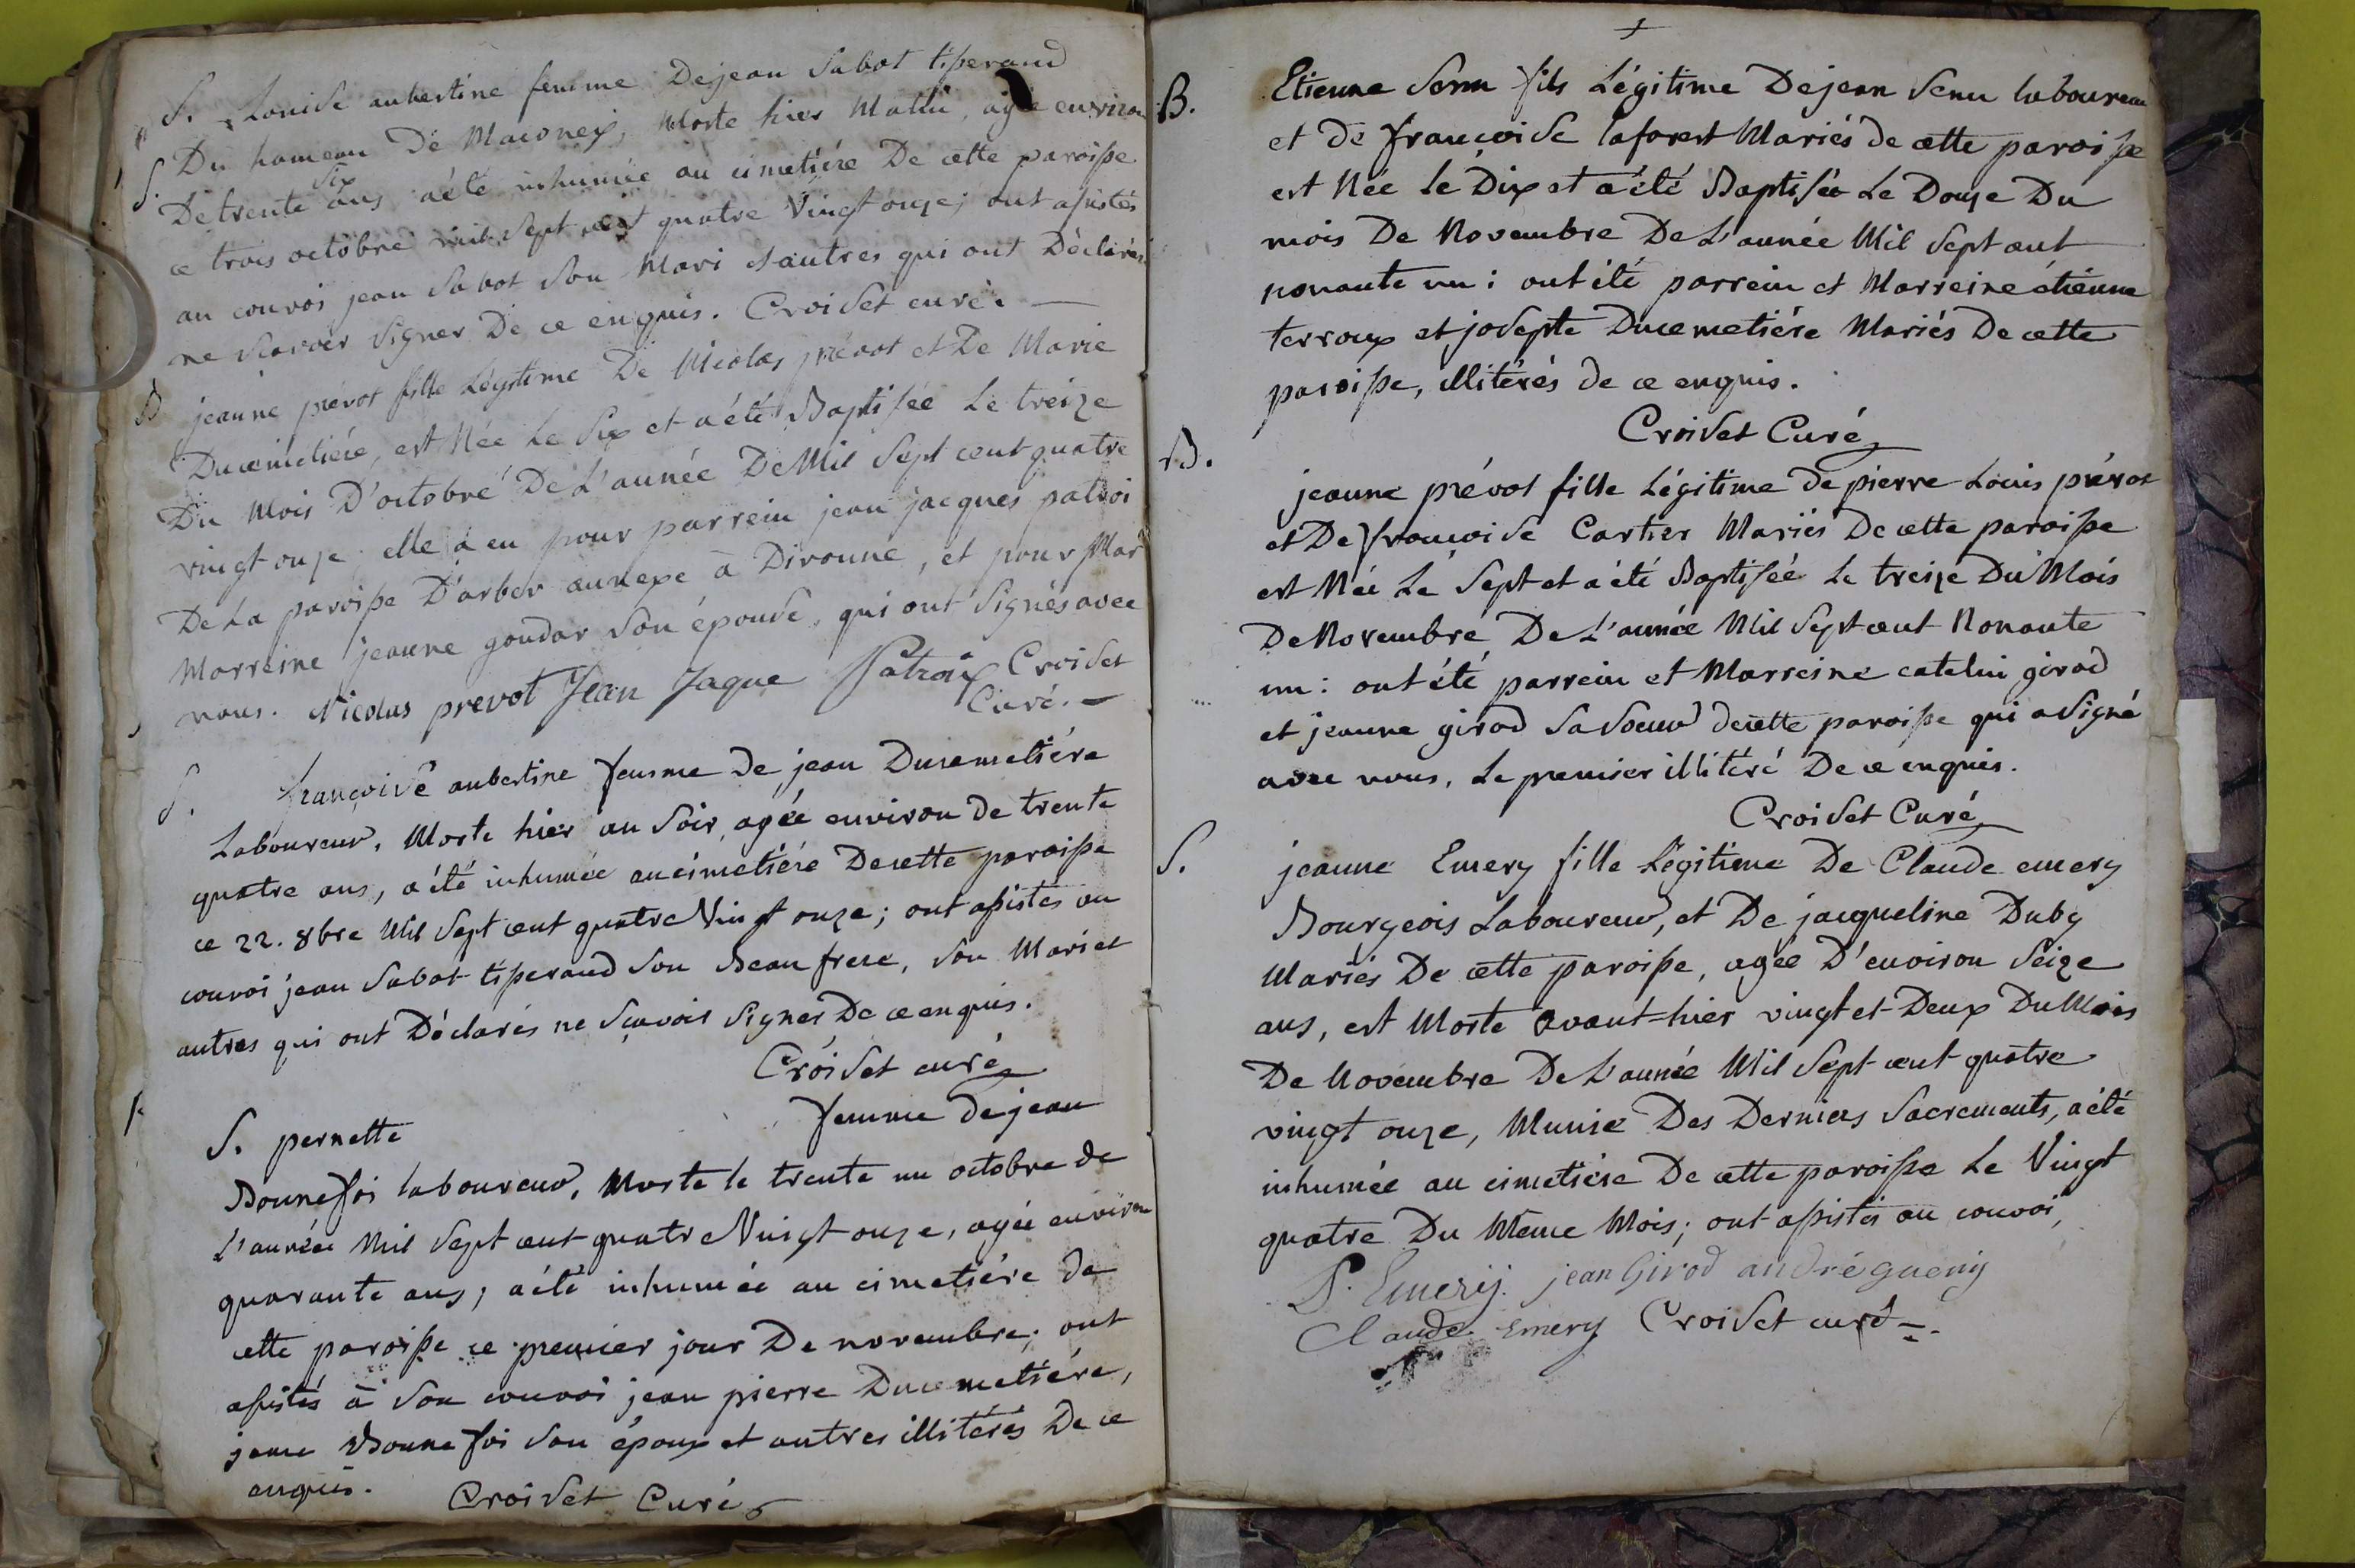 S. Louise aubertine femme Dejean Sabot tisserand
Du hameau De Maconex, Morte hier Matin, agée environ
S.
Six
De trente ans, a été inhumée au cimetiére De cette paroisse
ce trois octobre mil Sept cent quatre Vingt onze; ont assistés
au convoi jean Sabot Son Mari et autres qui ont Déclarés
ne Scavoir Signer De ce enquis. Croiset curé.
B jeanne prévot fille Légitime De Nicolas prévot et De Marie
Ducimetiére, est Née Le Six et a été Baptisée Le treize
Du Mois D'octobre De L'année De Mil Sept cent quatre
vingt onze, elle a eu pour parrein jean jacques patroi
De La paroisse D'arber annexe à Divonne, et pour Mar
Marreine jeanne goudar Son épouse, qui ont Signés avec
nous. Nicolas prevot Jean Jaque Patroix Croiset
Curé.
S. françoise aubertine femme de jean Ducemetiére
Laboureur, Morte hier au Soir, agée environ de trente
quatre ans, a été inhumée au cimetiére De cette paroisse
ce 22. 8bre Mil Sept cent quatre Vingt onze; ont assistés au
convoi jean Sabot tisserand Son Beau frere, Son Mari et
autres qui ont Déclarés ne Sçavoir Signer De ce enquis.
Croiset curé
S. pernette femme de jean
Bonnefoi laboureur, Morte le trente un octobre de
L'année Mil Sept cent quatre Vingt onze, agée environ
quarante ans; a été inhumée au cimetiére de
cette paroisse ce premier jour De novembre; ont
assistés à Son convoi jean pierre Ducemetiére,
jean Bonnefoi Son époux et autres illitérés De ce
enquis. Croiset Curé
B. Etienne Senn fils Légitime De jean Senn laboureur
et de françoise laforest Mariés de cette paroisse
est Née Le Dix et a été Baptisée Le Douze Du
mois De Novembre De L'année Mil Sept cent
nonante un: ont été parrein et Marreine étienne
terroux et josepte Ducemetiére Mariés De cette
paroisse, illitérés de ce enquis.
Croiset Curé
B.
jeanne prévot fille Légitime de pierre Louis prévot
et De françoise Cartier Mariés De cette paroisse
est Née Le Sept et a été Baptisée Le treize Du Mois
De Novembre De L'année Mil Sept cent Nonante
un: ont été parrein et Marreine catelin girod
et jeanne girod Sa Soeur de cette paroisse qui a Signé
avec nous, Le premier illitéré De ce enquis.
Croiset Curé
S. jeanne Emery fille Légitime De Claude emery
Bourgeois Laboureur, et De jacqueline Duby
Mariés De cette paroisse, agée D'environ Seize
ans, est Morte avant=hier vingt et Deux Du Mois
De Novembre De L'année Mil Sept cent quatre
vingt onze, Munie Des Derniers Sacrements, a été
inhumée au cimetiére De cette paroisse Le Vingt
quatre Du Même Mois; ont assistés au convoi,
P. Emerij. jean Girod andré gueny
Claude Emery Croiset curé